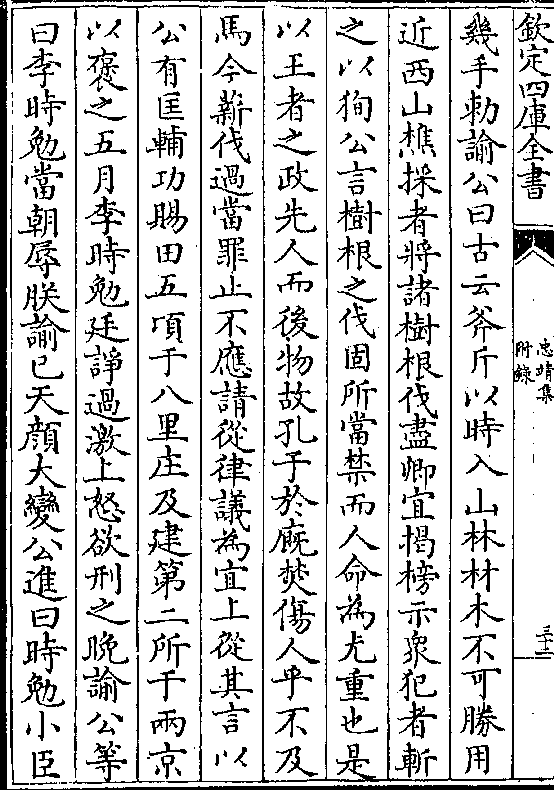 欽定四庫全書
忠靖集
附錄
三十三
幾手勅諭公曰古云斧斤以時入山林材木不可勝用
近西山樵採者將諸樹根伐盡卿宜揭榜示衆犯者斬
之以狥公言樹根之伐固所當禁而人命為尤重也是
以王者之政先人而後物故孔子於廐焚傷人乎不及
馬今薪伐過當罪止不應請從律議為宜上從其言以
公有匡輔功賜田五頃于八里庄及建第二所于兩京
以褒之五月李時勉廷諍過激上怒欲刑之晚諭公等
曰李時勉當朝辱朕諭已天顔大變公進曰時勉小臣